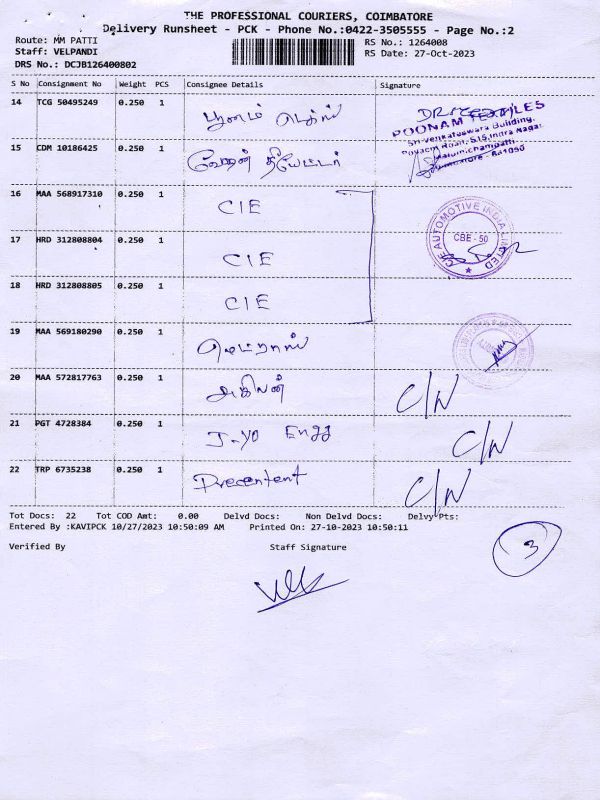 THE PROFESSIONAL COURIERS, COIMBATORE
Delivery Runsheet - PCK - Phone No.:0422-3505555 - Page No.:2
Route: MM PATTI
RS No.: 1264008
Staff: VELPANDI
RS Date: 27-Oct-2023
DRS No.: DCJB126400802
S No Consignment No Weight PCS Consignee Details Signature
14 TCG 50495249 0.250 1 பூனம்
POONAM TEXTILES
Sri Venkateswara Building,
15 CDM 10186425 0.250 1
16 MAA 568917310 0.250 1 CIE
CIE AUTOMOTIVE INDIA LIMITED
CBE - 50
17 HRD 312808804 0.250 1 CIE
18 HRD 312808805 0.250 1 CIE
19 MAA 569180290 0.250 1
20 MAA 572817763 0.250 1 அகிலன் C/N
21 PGT 4728384 0.250 1 J-yo Engg C/N
22 TRP 6735238 0.250 1 Precentent C/N
Tot Docs: 22 Tot COD Amt: 0.00 Delvd Docs: Non Delvd Docs: Delvy Pts:
Entered By :KAVIPCK 10/27/2023 10:50:09 AM Printed On: 27-10-2023 10:50:11
Verified By Staff Signature
3